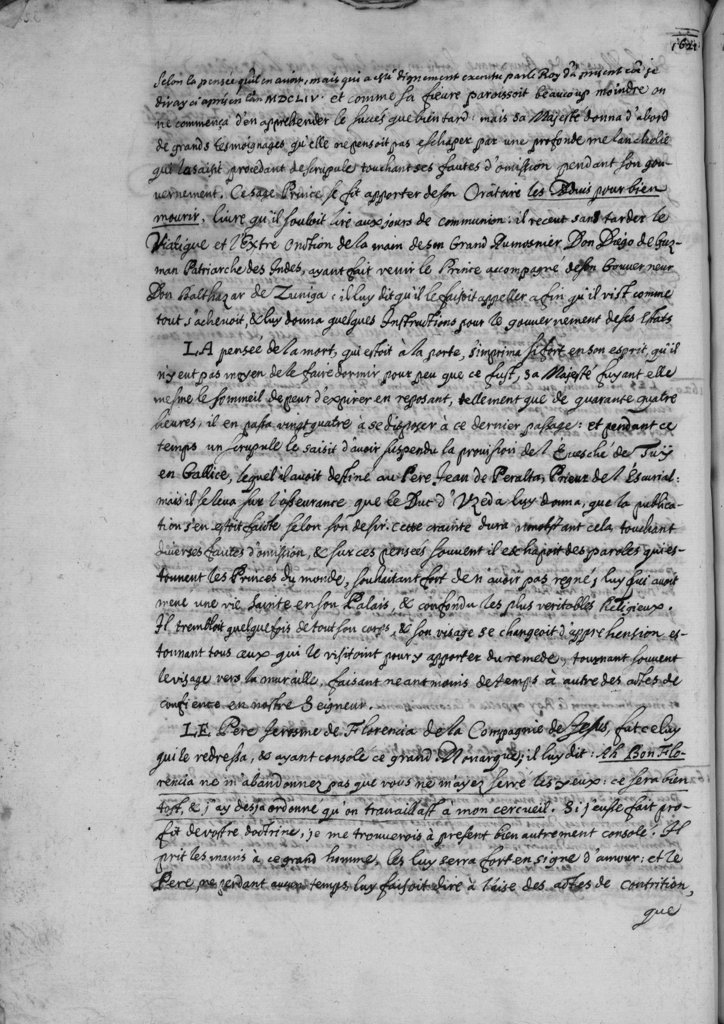 1621
selon la pensée qu'il en avoit, mais qui a esté dignement executée par le Roy d'a present come je
diray ci apres en l'an MDCLIV. et comme sa fievre paroissoit beaucoup moindre on
ne commença d'en apprehender le succes que bien tard: mais sa Majesté donna d'abord
de grands tesmoignages qu'elle ne pensoit pas eschaper par une profonde melancholie
qui la saisit, procedant de scrupule touchant ses fautes d'omission pendant son gou-
vernement. Ce sage Prince se fit apporter de son Oratoire les Avis pour bien
mourir, livre qu'il souloit lire aux jours de communion: il receut sans tarder le
Viatique et l'Extre Onction de la main de son Grand Aumosnier Don Diego de Guz-
man Patriarche des Indes, ayant fait venir le Prince accompagné de son Gouverneur
Don Balthazar de Zuniga: il luy dit qu'il le faisoit appeller afin qu'il vist comme
tout s'achevoit, & luy donna quelques Instructions pour le gouvernement de ses Estats
LA pensée de la mort, qui estoit à la porte, s'imprima si fort en son esprit, qu'il
n'y eut pas moyen de le faire dormir pour peu que ce fust, Sa Majesté fuyant elle
mesme le sommeil de peur d'expirer en reposant, tellement que de quarante quatre
heures, il en passa vingt quatre à se disposer à ce dernier passage: et pendant ce
temps un scrupule le saisit d'avoir suspendu la provision de l'Evesché de Tuÿ
en Gallice, lequel il avoit destiné au Pere Jean de Peralta, Prieur de l'Escurial:
mais il se leva sur l'asseurance que le Duc d'Uzeda luy donna, que la publica-
tion s'en estoit faicte selon son desir. Cette crainte dura nonobstant cela touchant
diverses fautes d'omission, & sur ces pensées souvent il eschapoit des paroles qui es-
tonnent les Princes du monde, souhaitant fort de n'avoir pas regné; luy qui avoit
mené une vie sainte en son Palais, & confondu les plus veritables Religieux.
Il trembloit quelque fois de tout son corps, & son visage se changeoit d'apprehension es-
tonnant tous ceux qui le visitoint pour y apporter du remede, tournant souvent
le visage vers la muraille, faisant neantmoins de temps à autre des actes de
confience en nostre Seigneur.
LE Pere Jerosme de Florencia de la Compagnie de Jesus, fut celuy
qui le redressa, & ayant consolé ce grand Monarque, il luy dit: Ah Bon Flo-
rencia ne m'abandonnez pas que vous ne m'ayez serré les yeux: ce sera bien
tost, & j'ay desja ordonné qu'on travaillast à mon cercueil. Si j'eusse fait pro-
fit de vostre doctrine, je me trouverois à present bien autrement consolé. Il
prit les mains à ce grand homme, les luy serra fort en signe d'amour: et le
Pere ne perdant aucun temps luy faisoit dire à l'aise des actes de contrition,
que